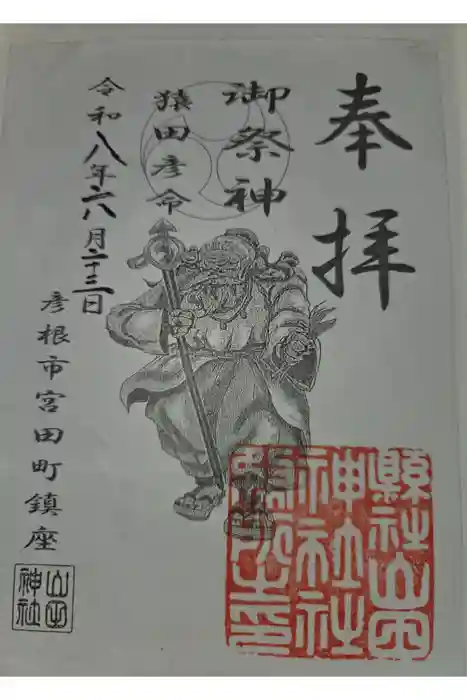 奉拝
御祭神
猿田彦命
令和八年六月二十三日
彦根市宮田町鎮座
山田
神社
縣社山田
神社社
務所之印